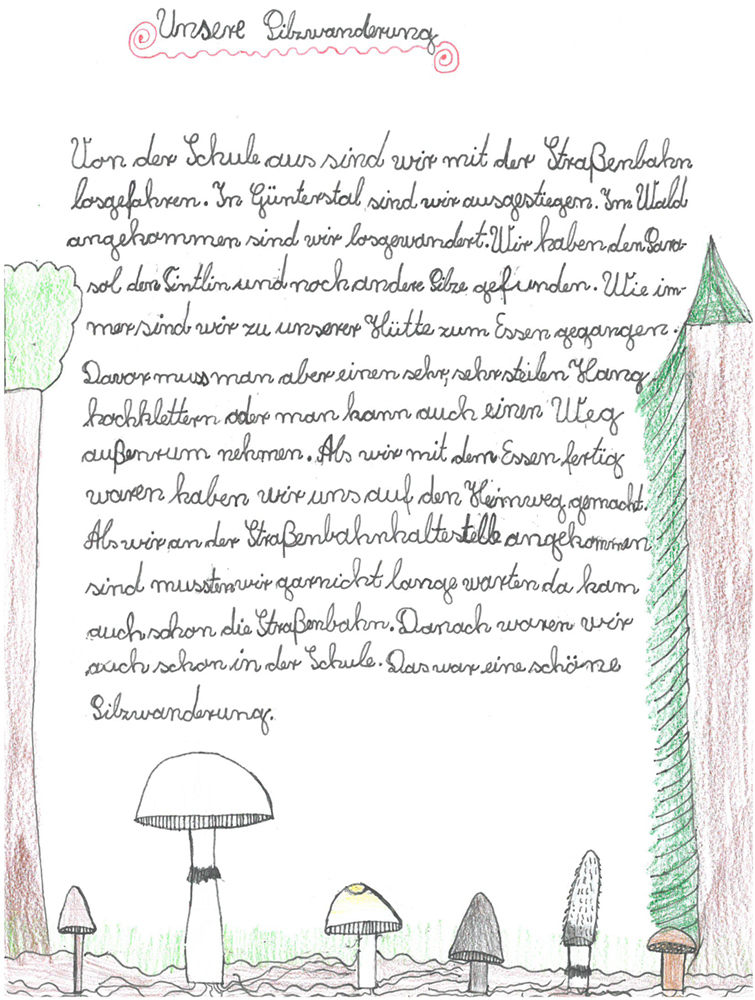 Unsere Pilzwanderung
Von der Schule aus sind wir mit der Straßenbahn
losgefahren. In Günterstal sind wir ausgestiegen. Im Wald
angekommen sind wir losgewandert. Wir haben den Para-
sol den Tintlin und noch andere Pilze gefunden. Wie im-
mer sind wir zu unserer Hütte zum Essen gegangen.
Davor muss man aber einen sehr, sehr steilen Hang
hochklettern oder man kann auch einen Weg
außenrum nehmen. Als wir mit dem Essen fertig
waren haben wir uns auf den Heimweg gemacht.
Als wir an der Straßenbahnhaltestelle angekommen
sind mussten wir garnicht lange warten da kam
auch schon die Straßenbahn. Danach waren wir
auch schon in der Schule. Das war eine schöne
Pilzwanderung.